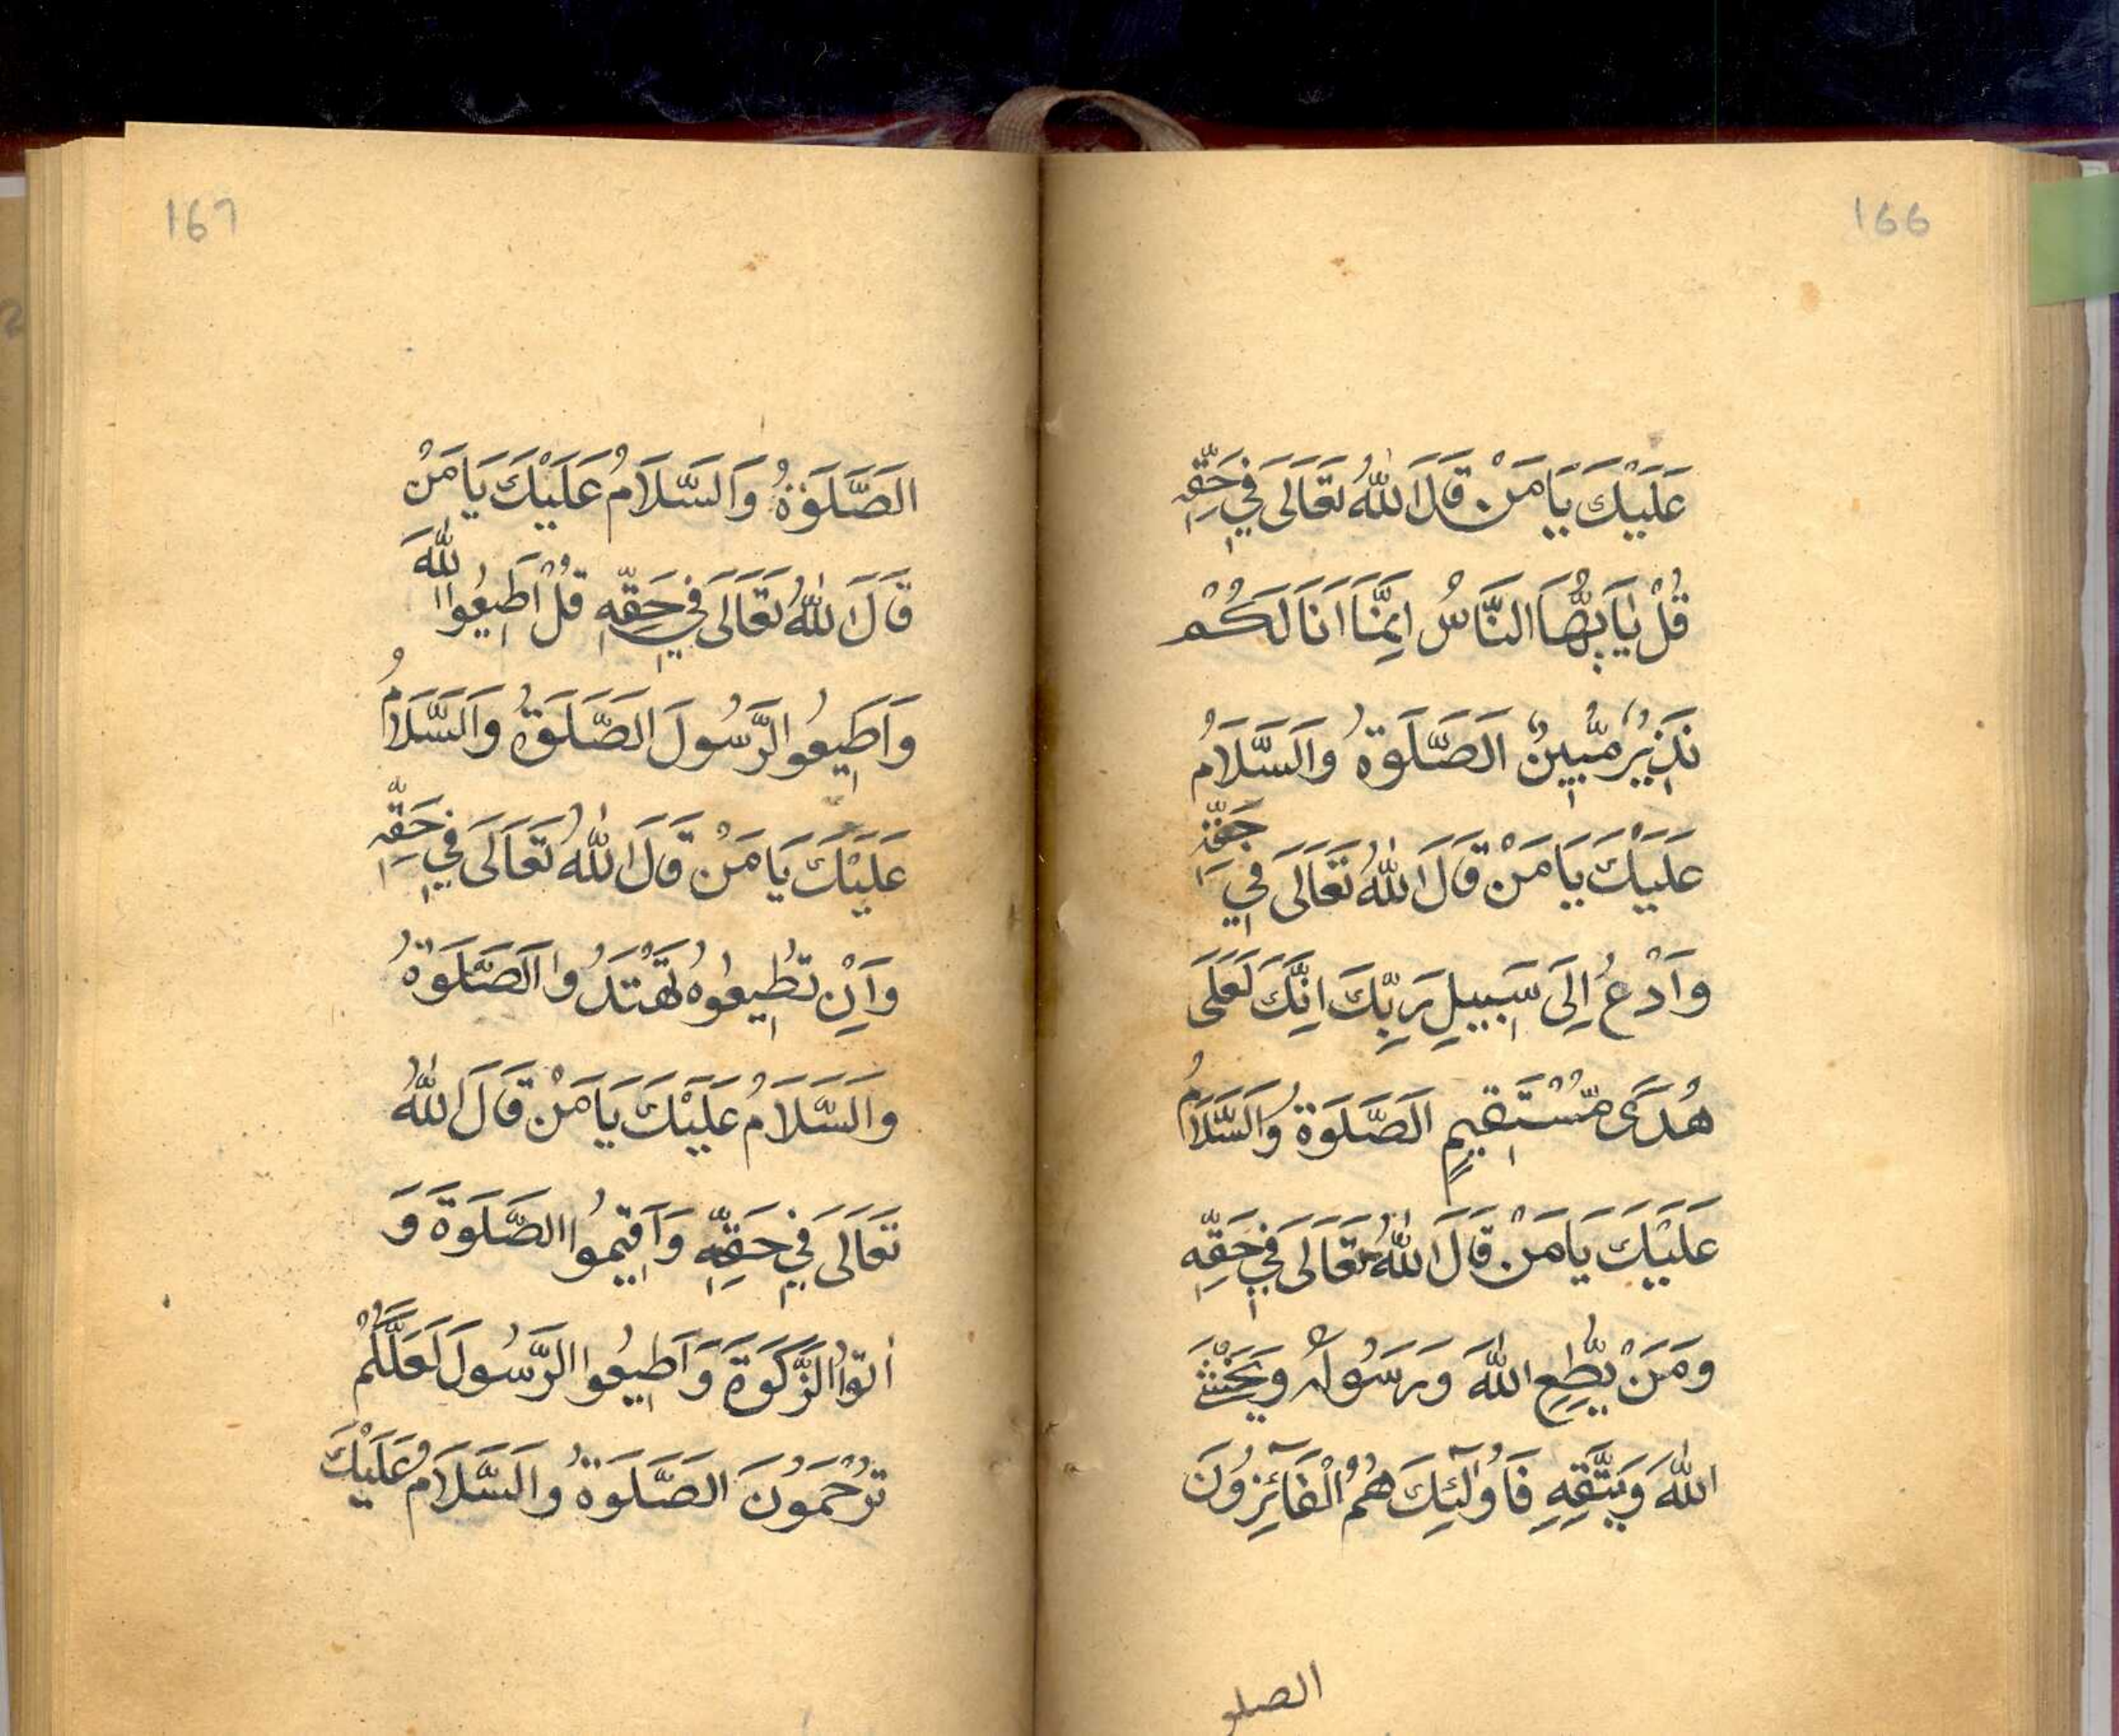 166
عَلَيْكَ يَا مَنْ قَالَ اللّٰهُ تَعَالَى فِي حَقِّهٖ
قُلْ يٰاَيُّهَا النَّاسُ اِنَّمَا اَنَا لَكُمْ
نَذِيْرٌ مُّبِيْنٌ الَصَّلَوةُ وَالسَّلَامُ
عَلَيْكَ يَا مَنْ قَالَ اللّٰهُ تَعَالَى فِي حَقِّهٖ
وَادْعُ اِلَى سَبِيلِ رَبِّكَ اِنَّكَ لَعَلَى
هُدًى مُّسْتَقِيمٍ الَصَّلَوةُ وَالسَّلَامُ
عَلَيْكَ يَا مَنْ قَالَ اللّٰهُ تَعَالَى فِي حَقِّهٖ
وَمَنْ يُّطِعِ اللّٰهَ وَرَسُولَهُ وَيَخْشَ
اللّٰهَ وَيَتَّقِهِ فَاُولٰٓئِكَ هُمُ الْفَآئِزُونَ
الصلو
167
الَصَّلَوةُ وَالسَّلَامُ عَلَيْكَ يَا مَنْ
قَالَ اللّٰهُ تَعَالَى فِي حَقِّهٖ قُلْ اَطِيعُوا اللّٰهَ
وَاَطِيعُوا الرَّسُولَ الَصَّلَوةُ وَالسَّلَامُ
عَلَيْكَ يَا مَنْ قَالَ اللّٰهُ تَعَالَى فِي حَقِّهٖ
وَاِنْ تُطِيعُوهُ تَهْتَدُوا الَصَّلَوةُ
وَالسَّلَامُ عَلَيْكَ يَا مَنْ قَالَ اللّٰهُ
تَعَالَى فِي حَقِّهٖ وَاَقِيمُوا الصَّلَوةَ وَ
اٰتوُا الزَّكَوةَ وَاَطِيعُوا الرَّسُولَ لَعَلَّكُمْ
تُرْحَمُونَ الَصَّلَوةُ وَالسَّلَامُ عَلَيْكَ